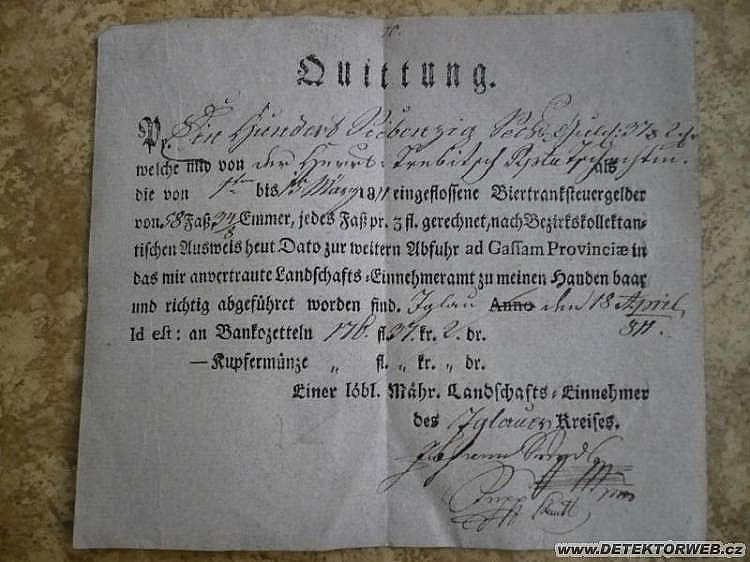 Quittung.
Pr. Ein Hundert Siebenzig Sechs Guld: 37 x 2
welche mir von der Herrs: Trebitsch als
die von 1ten bis 15 März 811 eingeflossene Biertranksteuergelder
von 58 Faß, Emmer, jedes Faß pr. 3 fl. gerechnet, nach Bezirkskollektan-
tischen Ausweis heut Dato zur weitern Abfuhr ad Cassam Provinciæ in
das mir anvertraute Landschafts-Einnehmeramt zu meinen Handen baar
und richtig abgeführet worden sind. Iglau Anno den 18 April
Id est: an Bankozetteln 176. fl. 37. kr. 2. dr. 811.
— Kupfermünze „ fl. „ kr. „ dr.
Einer löbl. Mähr. Landschafts-Einnehmer
des Iglauer Kreises.
Johann
www.DETEKTORWEB.cz